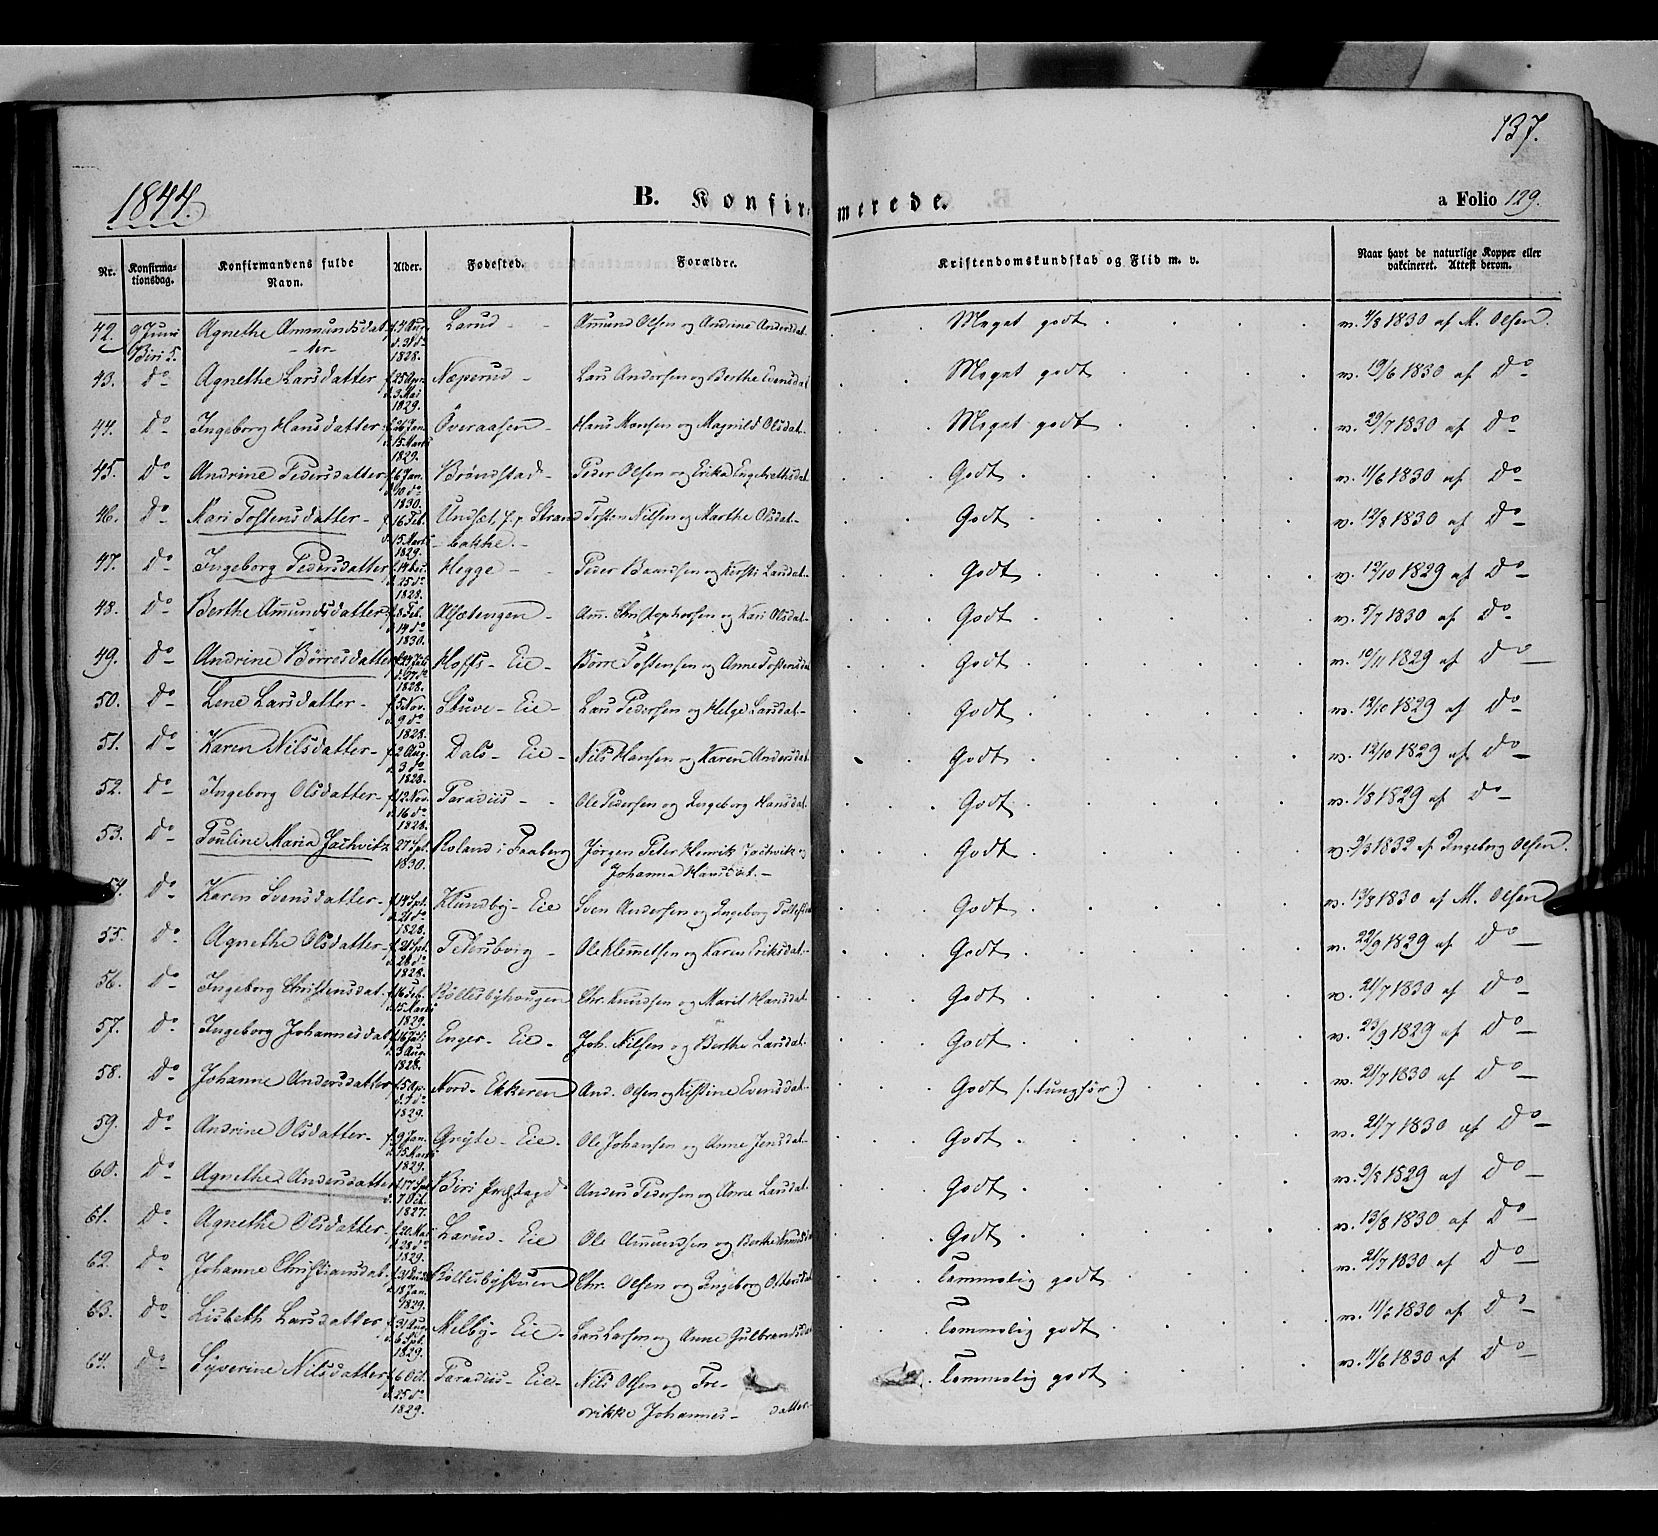 137.
1844.
B. Konfirmerede.
a Folio 129.
Nr. Konfirmationsdag. Konfirmandens fulde Navn. Alder. Fødested. Forældre. Kristendomskundskab og Flid m. v. Naar havt de naturlige Kopper eller vakcineret. Attest derom.
42. 9 Juni Biri S. Agnethe Ammundsdatter f. 4 Aug. d. 31 do 1828. Larud - Amund Olsen og Andrine Andersdat. Meget godt v. 4/8 1830 af M. Olsen.
43. Do Agnethe Larsdatter f. 25 Apr. d. 3 Mai 1829. Næperud - Lars Andersen og Berthe Evensdat Meget godt v. 19/6 1830 af Do
44. Do Ingeborg Hansdatter f. 26 Jan. d. 15 Marts 1829. Överaasen - Hans Monsen og Magnild Olsdat. Meget godt v. 29/7 1830 af Do
45. Do Andrine Pedersdatter f. 6 Jan. d. 10 do 1830. Brönstad - Peder Olsen og Erika Engebrethsdat. Godt v. 11/6 1830 af Do
46. Do Mari Tostensdatter - f. 16 Feb. d. 15 Marts 1829. Undset p. p. Strandbakke. - Tosten Nilsen og Marthe Olsdat - Godt v. 12/8 1830 af Do
47. Do Ingeborg Pedersdatter d. 25 do 1828. Hegge - Peder Baardsen og Kersti Larsdat. Godt v. 12/10 1829 af Do
48. Do Berthe Amundsdatter f. 8 Feb. d. 14 do 1830. Alfstengen - Am. Christophersen og Kari Olsdat - Godt v. 5/7 1830 af Do
49. Do Andrine Börresdatter 1828. Hoffs - Eie - Börre Tostensen og Anne Tostensdat Godt v. 10/11 1829 af Do
50. Do Lene Larsdatter - f. 5 Nov. d. 9 do 1828. Stuve - Eie - Lars Pedersen og Helge Larsdat - Godt v. 12/10 1829 af Do
51. Do Karen Nilsdatter - f. 2 Aug. d. 3 do 1828. Dals - Eie - Nils Hansen og Karen Andersdat Godt v. 12/10 1829 af Do
52. Do Ingeborg Olsdatter - f. 12 Nov. d. 16 do 1828. Paradiis - Ole Pedersen og Ingeborg Hansdat. Godt v. 1/8 1829 af Do
53. Do Pouline Maria Jachvitz 27 Spt. 1830. Roland i Faaberg Jörgen Peter Henrik Jachvik og Johanna Hansdat. - Godt v. 9/3 1832 af Ingeborg Olsen.
54. Do Karen Svensdatter - f. 14 Spt. d. 21 do 1828. Klundby - Eie Sven Andersen og Ingeborg Godt v. 13/8 1830 af M. Olsen
55. Do Agnethe Olsdatter - f. 21 Spt. d. 28 do 1828. Petersborg - Ole Klemetsen og Karen Eriksdat. Godt v. 22/9 1829 af Do
56. Do Ingeborg Christensdat. f. 16 Feb. d. 15 Marts 1829.Böllesbyhaugen Chr. Knudsen og Marit Hansdat. Godt v. 21/7 1830 af Do
57. Do Ingeborg Johannesdat d. 3 Aug. 1828. Enger - Eie - Joh. Nilsen og Berthe Larsdat - Godt v. 23/9 1829 af Do
58. Do Johanne Andersdatter f. 5 Ap. 1829. Nord - Ekkeren And. Olsen og Kistine Evensdat - Godt (: tungför :) v. 21/7 1830 af Do
59. Do Andrine Olsdatter - f. 9 Jan. d. 15 Marts 1829. Gröte - Eie - Ole Johansen og Anne Jensdat - Godt v. 21/7 1830 af Do
60. Do Agnethe Andersdatter f. 17 Spt. d. 7 Oct. 1827. Biri Prestegd Anders Pedersen og Anne Larsdat - Godt v. 9/8 1829 af Do
61. Do Agnethe Olsdatter - f. 20 Mai d. 28 do 1829. Larud - Eie Ole Amundsen og Berthe Knudsdat Godt v. 13/8 1830 af Do
62. Do Johanne Christiansdat. d. 18 Jan. 1829. Böllesbystuen Chr. Olsen og Ingeborg Ottersdat Temmelig godt v. 21/7 1830 af Do
63. Do Lisbeth Larsdatter f. 31 Aug. d. 6 Spt. 1829. Melby - Eie - Lars Larsen og Anne Gulbrandsdat Temmelig godt v. 11/6 1830 af Do
64. Do Syverine Nilsdatter f. 6 Oct. d. 25 do 1829. Paradiis - Eie - Nils Olsen og Fredrikke Johannesdatter - Temmelig godt v. 11/6 1830 af Do